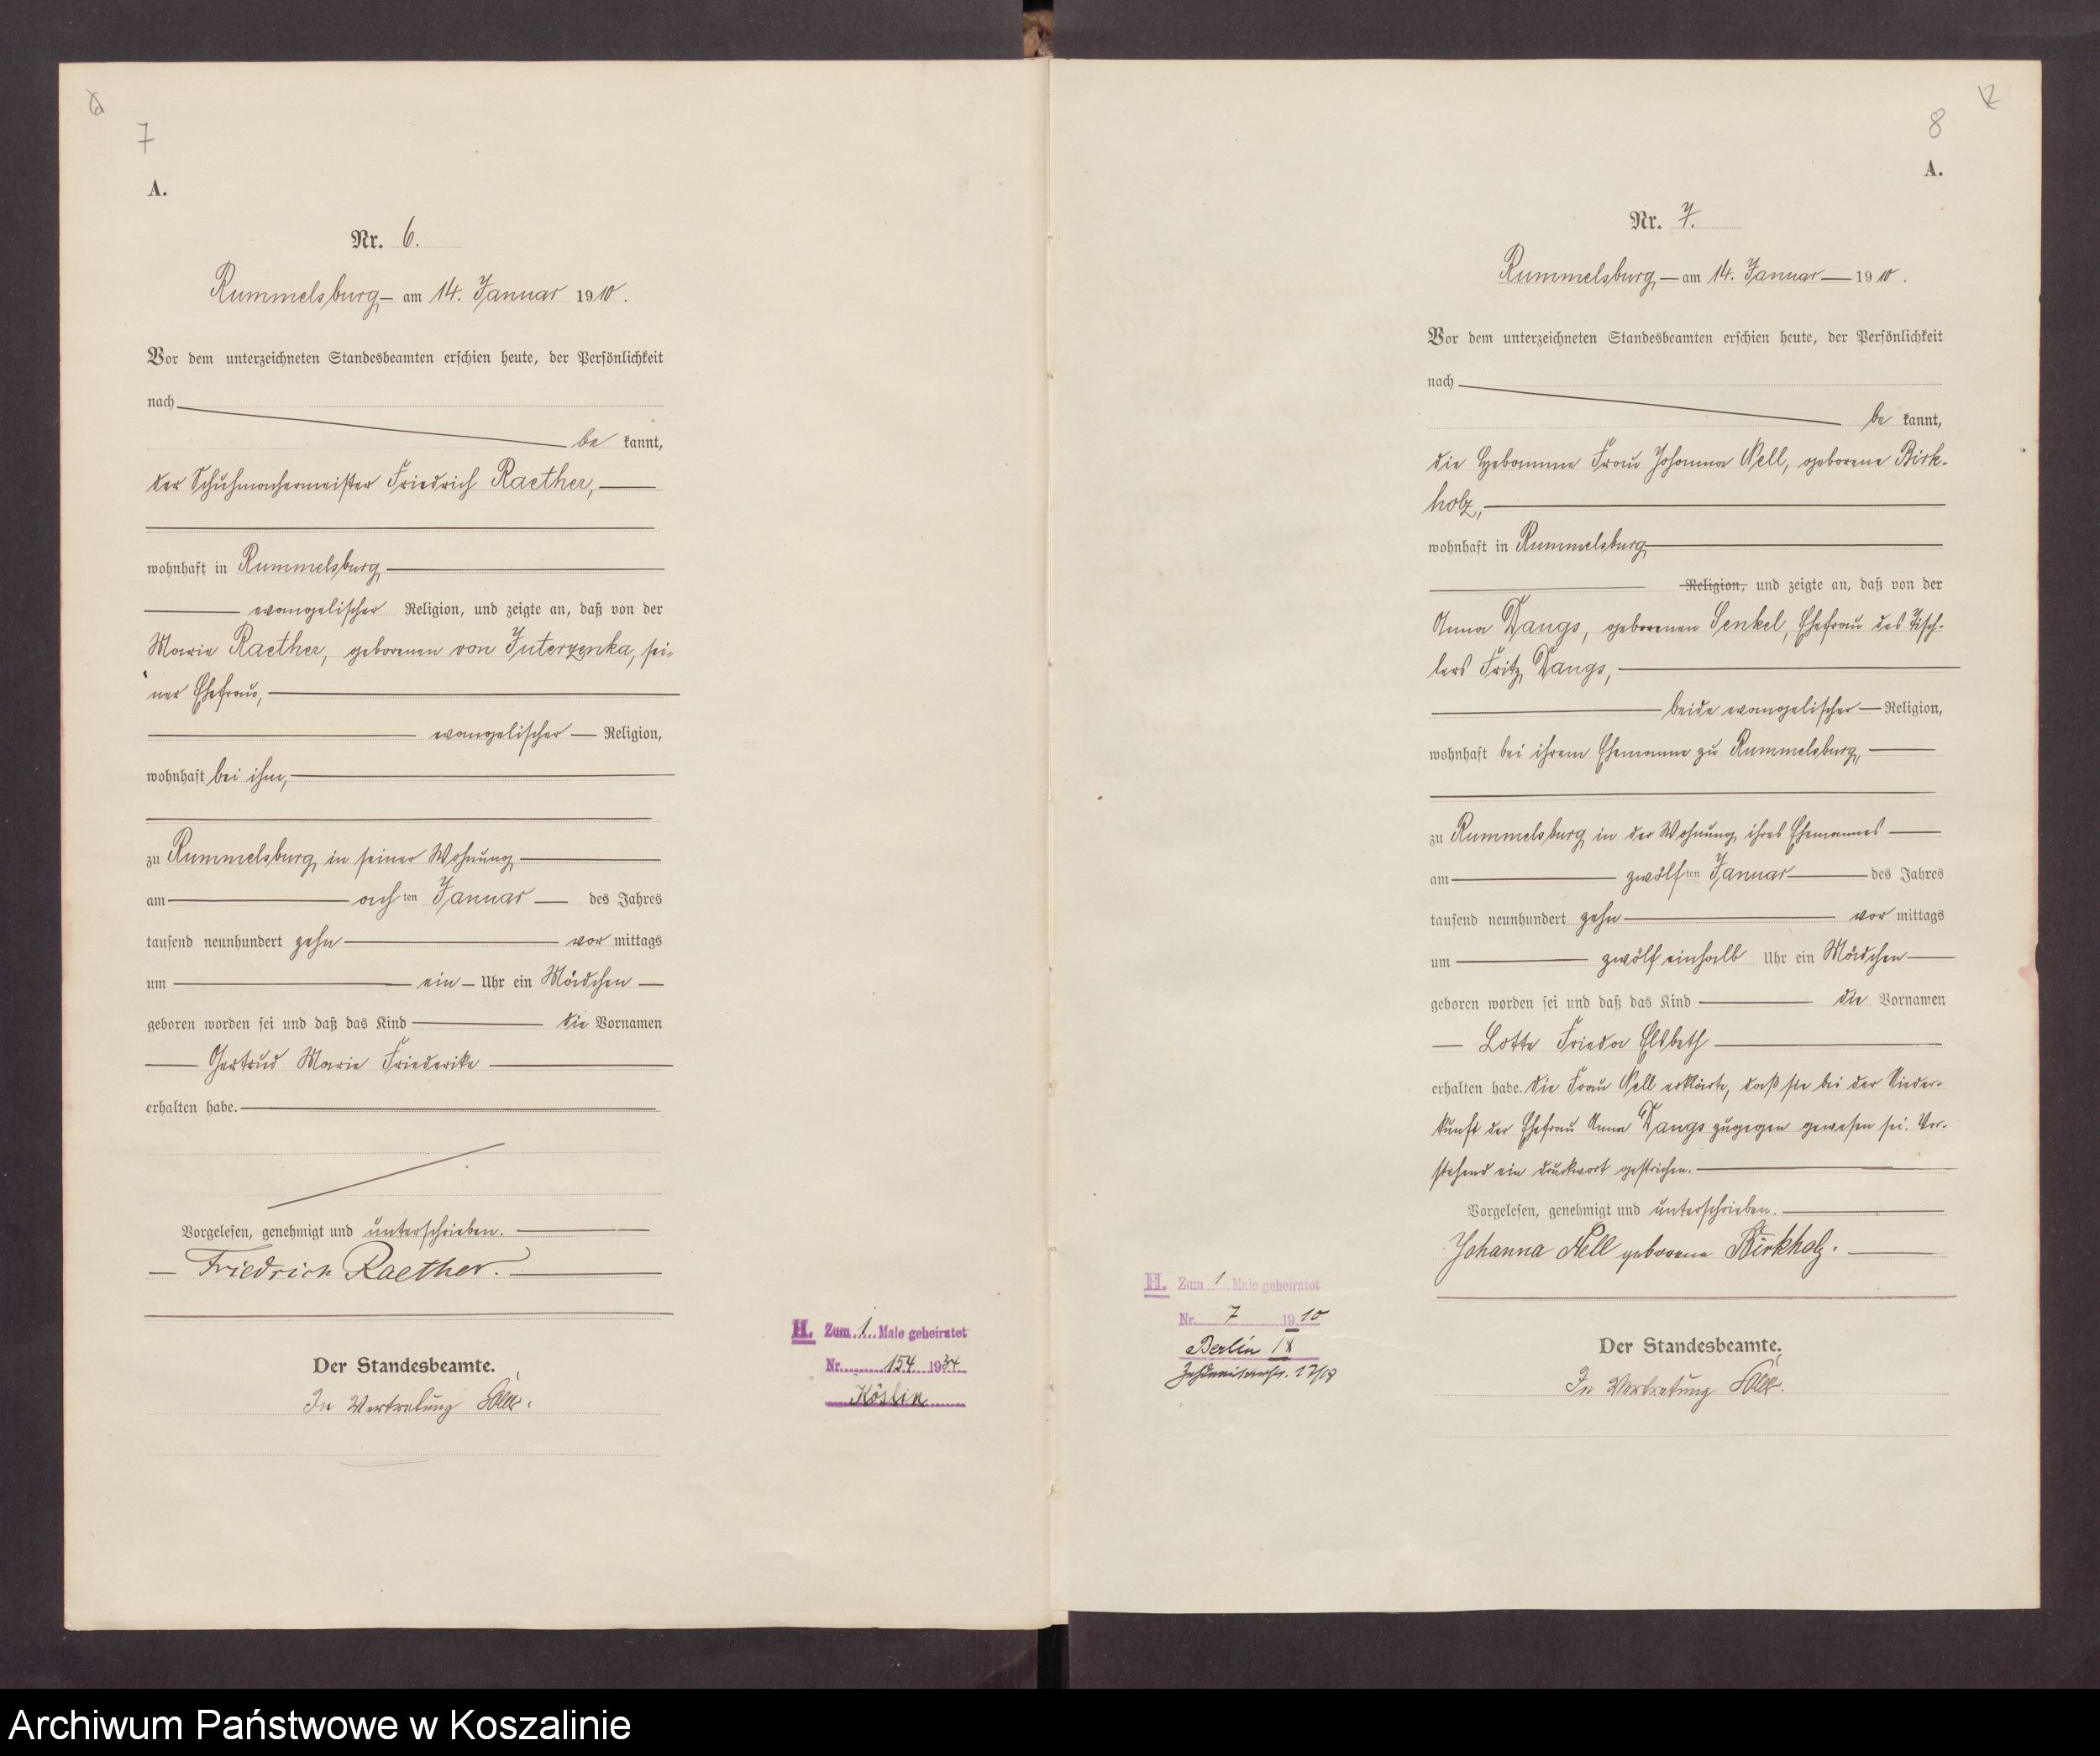 7
A.
Nr. 6.
Rummelsburg am 14. Januar 1910.
Vor dem unterzeichneten Standesbeamten erschien heute, der Persönlichkeit
nach
be kannt,
der Schuhmachermeister Friedrich Raether,
wohnhaft in Rummelsburg
evangelischer Religion, und zeigte an, daß von der
Marie Raether, geborenen von Juterzenka, sei-
ner Ehefrau,
evangelischer Religion,
wohnhaft bei ihm,
zu Rummelsburg in seiner Wohnung
am achten Januar des Jahres
tausend neunhundert zehn vor mittags
um ein Uhr ein Mädchen
geboren worden sei und daß das Kind die Vornamen
Gertrud Marie Friederike
erhalten habe.
Vorgelesen, genehmigt und unterschrieben.
Friedrich Raether.
Der Standesbeamte.
In Vertretung
H. Zum 1 Male geheiratet
Nr. 154 1934
Köslin
8
A.
Nr. 7.
Rummelsburg am 14. Januar 1910.
Vor dem unterzeichneten Standesbeamten erschien heute, der Persönlichkeit
nach
be kannt,
die Hebamme Frau Johanna Nell, geborene Birk-
holz,
wohnhaft in Rummelsburg
Religion, und zeigte an, daß von der
Anna Dangs, geborenen Senkel, Ehefrau des Tisch-
lers Fritz Dangs,
beide evangelischer Religion,
wohnhaft bei ihrem Ehemanne zu Rummelsburg,
zu Rummelsburg in der Wohnung ihres Ehemannes
am zwölften Januar des Jahres
tausend neunhundert zehn vor mittags
um zwölf einhalb Uhr ein Mädchen
geboren worden sei und daß das Kind die Vornamen
Lotte Frieda Elsbeth
erhalten habe. Die Frau Nell erklärte, daß sie bei der Nieder-
kunft der Ehefrau Anna Dangs zugegen gewesen sei. Vor-
stehend ein Druckwort gestrichen.
Vorgelesen, genehmigt und unterschrieben.
Johanna Nell geborene Birkholz.
H. Zum 1 Male geheiratet
Nr. 7 1910
Berlin
Der Standesbeamte.
In Vertretung
Archiwum Państwowe w Koszalinie